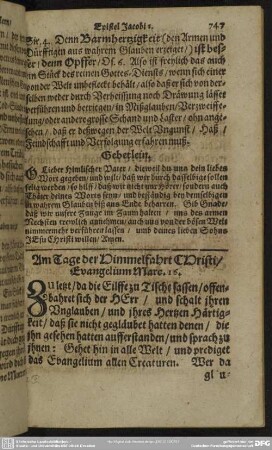 Epistel Jacobi 1. 747
Sir. 4. Denn Barmhertzigkeit (den Armen und
Dürfftigen aus wahrem Glauben erzeiget) ist bes-
ser / denn Opffer / Os. 6. Also ist freylich das auch
ein Stück des reinen Gottes-Diensts / wenn sich einer
von der Welt unbefleckt behält / also daß er sich von der-
selben weder durch Verheissung noch Dräwung lässet
verführen und betriegen / in Mißglauben / Verzweiffe-
lung / oder andere grosse Schand und Laster / ohn ange-
sehen / daß er deswegen der Welt Ungunst / Haß /
Feindschafft und Verfolgung erfahren muß.
Gebetlein.
O Lieber Himlischer Vater / dieweil du uns dein liebes
Wort gegeben / und wilt / daß wir durch dasselbige sollen
selig werden / so hilff / daß wir nicht nur Hörer / sondern auch
Thäter deines Worts seyn / und beständig bey demselbigen
in wahrem Glauben biß ans Ende beharren. Gib Gnade /
daß wir unsere Zunge im Zaum halten / uns des armen
Nechsten trewlich annehmen / auch uns von der bösen Welt
nimmermehr verführen lassen / umb deines lieben Sohns
JEsu Christi willen / Amen.
Am Tage der Himmelfahrt CHristi /
Evangelium Marc. 16.
ZU letzt / da die Eilffe zu Tische sassen / offen-
bahret sich der HErr / und schalt ihren
Unglauben / und ihres Hertzen Härtig-
keit / daß sie nicht gegläubet hatten denen / die
ihn gesehen hatten aufferstanden / und sprach zu
ihnen: Gehet hin in alle Welt / und prediget
das Evangelium allen Creaturen. Wer da
glu-